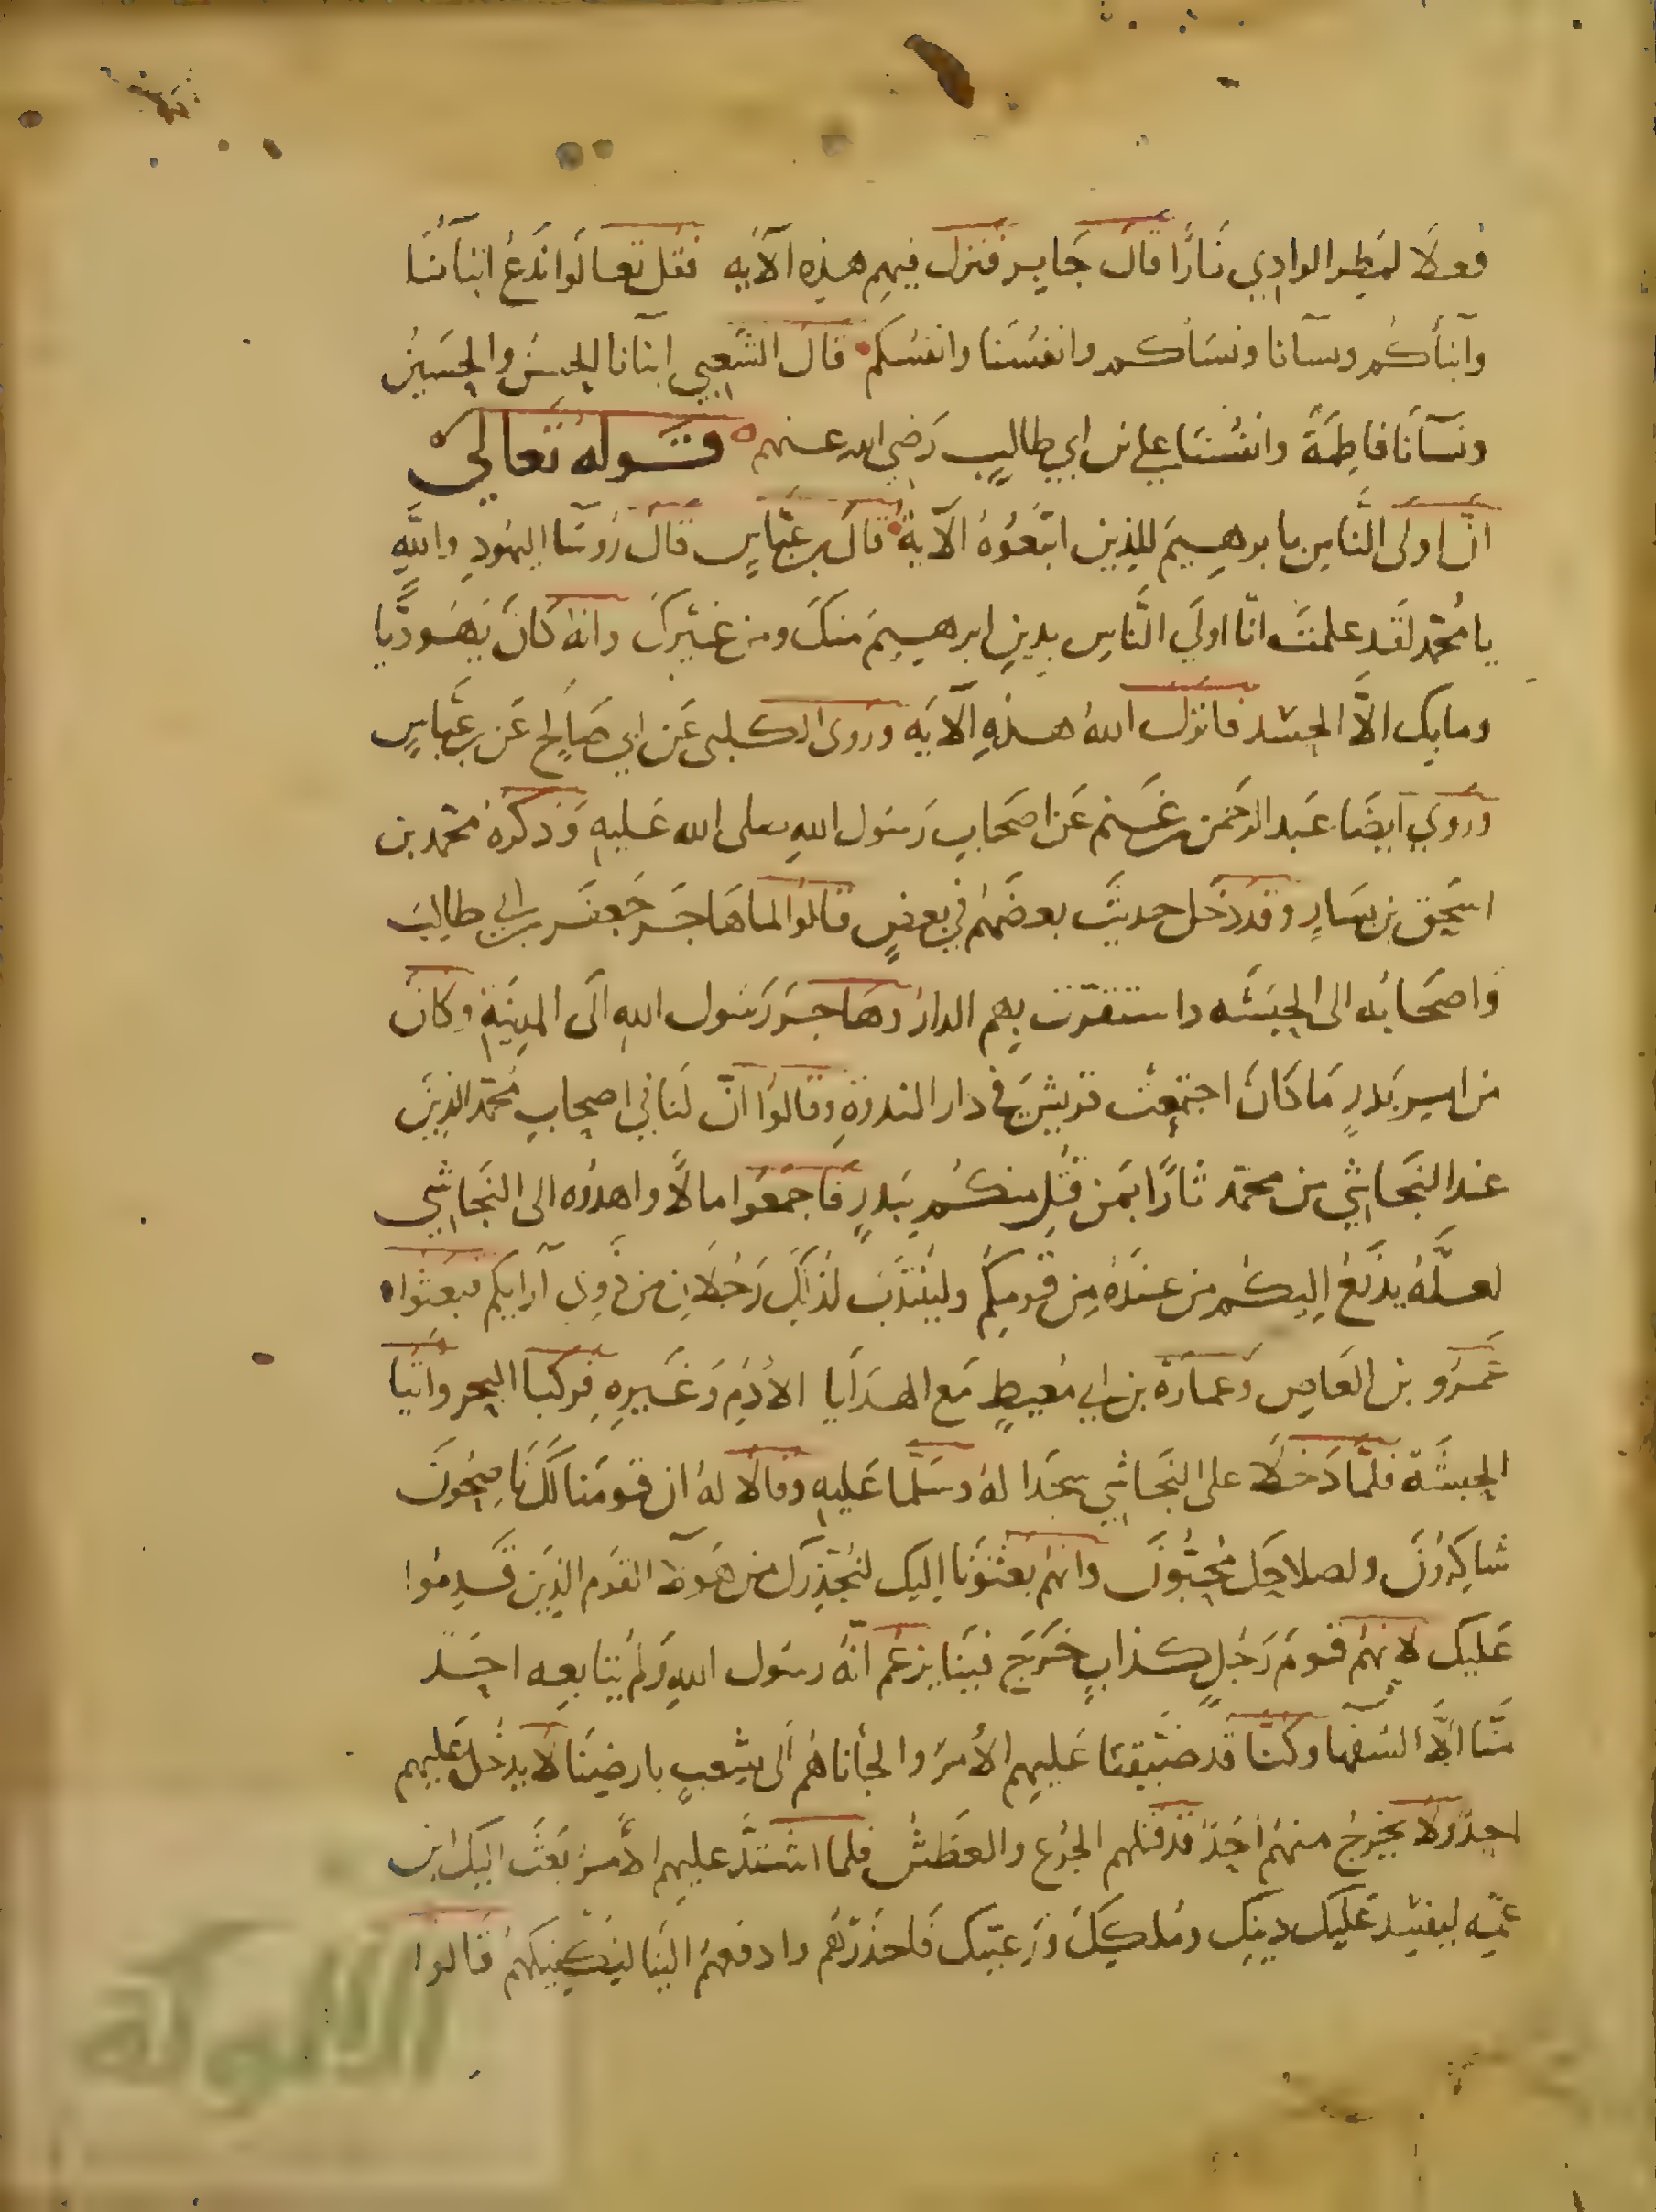 فعلا لمطر الوادي نارا قال جابر فنزل فيهم هذه الآية فقل تعالوا ندع ابناءنا
وابناءكم ونسآنا ونساءكم وانفسنا وانفسكم قال الشعبي ابنانا الحسن والحسين
ونسآنا فاطمة وانفسنا علي بن ابي طالب رضي الله عنهم قوله تعالى
ان اولى الناس بابرهيم للذين اتبعوه الآية قال بن عباس قال رؤسا اليهود والله
يا محمد لقد علمت انا اولي الناس بدين ابرهيم منك ومن غيرك وانه كان يهوديا
وما بك الا الحسد فانزل الله هذه الآية وروى الكلبى عن ابي صالح عن بن عباس
وروي ايضا عبد الرحمن بن غنم عن اصحاب رسول الله صلى الله عليه وذكره محمد بن
اسحق بن يسار وقد دخل حديث بعضهم في بعض قالوا لما هاجر جعفر بن ابي طالب
واصحابه الى الحبشه واستقرت بهم الدار وهاجر رسول الله الى المدينة وكان
من امر بدر ما كان اجتمعت قريش في دار الندوة وقالوا ان لنا في اصحاب محمد الذين
عند النجاشي من محمد ثارا بمن قتل منكم ببدر فاجمعوا مالا واهدوه الى النجاشي
لعله يدفع اليكم من عنده من قومكم ولينتدب لذلك رجلان من ذوي آرايكم فبعثوا
عمرو بن العاص وعمارة بن ابي معيط مع الهدايا الادم وغيره فركبا البحر واتيا
الحبشة فلما دخلا على النجاشي سجدا له وسلما عليه وقالا له ان قومنا لك ناصحون
شاكرون ولصلاحك محبون وانهم بعثونا اليك لنحذرك من هولآ القوم الذين قدموا
عليك لانهم قوم رجل كذاب خرج فينا يزعم انه رسول الله ولم يتابعه احد
منا الا السفها وكنا قد ضيقنا عليهم الامر والجأناهم الى شعب بارضنا لا يدخل عليهم
احد ولا يخرج منهم احد قد قتلهم الجوع والعطش فلما اشتد عليهم الامر بعث اليك ابن
عمه ليفسد عليك دينك وملكك ورعيتك فاحذرهم وادفعهم الينا لنكفيكهم قالوا
الألوكة